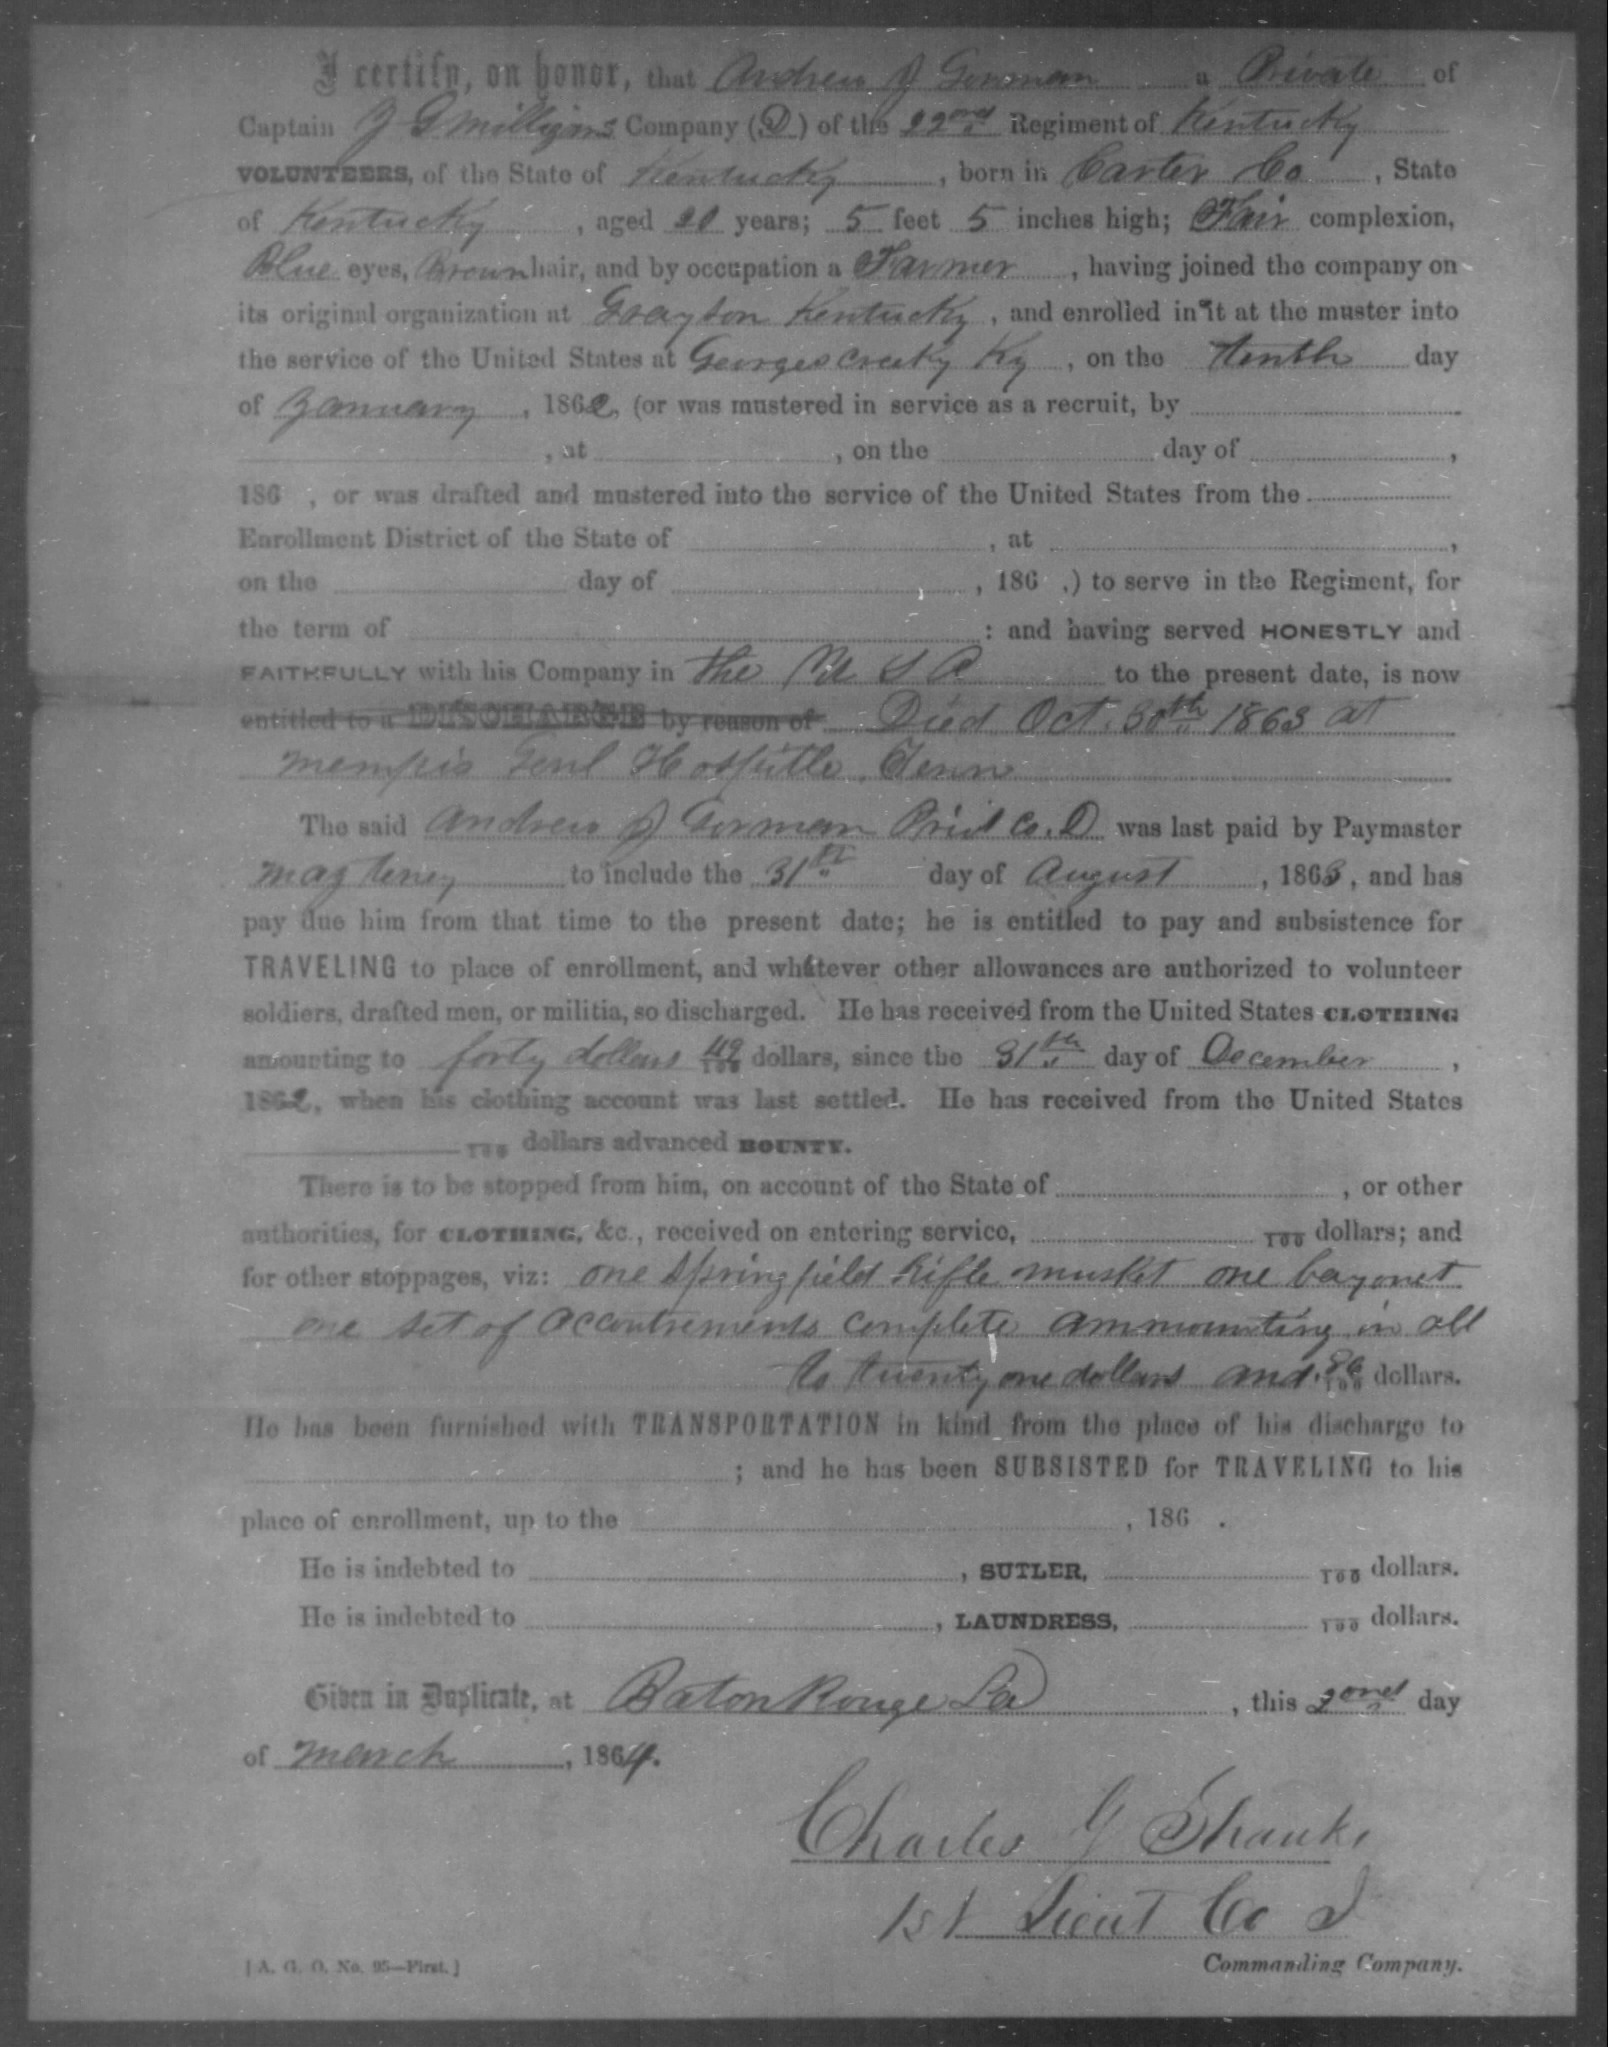 I certify, on honor, that Andrew J Gorman a Private of
Captain J G Milligans Company (D) of the 22nd Regiment of Kentucky
VOLUNTEERS, of the State of Kentucky, born in Carter Co, State
of Kentucky, aged 20 years; 5 feet 5 inches high; Fair complexion,
Blue eyes, Brown hair, and by occupation a Farmer, having joined the company on
its original organization at Grayson Kentucky, and enrolled in it at the muster into
the service of the United States at Georges Creeky Ky, on the tenth day
of January, 1862, (or was mustered in service as a recruit, by
, at , on the day of ,
186 , or was drafted and mustered into the service of the United States from the
Enrollment District of the State of , at ,
on the day of , 186 ,) to serve in the Regiment, for
the term of : and having served HONESTLY and
FAITHFULLY with his Company in the U S A to the present date, is now
entitled to a DISCHARGE by reason of Died Oct. 30th 1863 at
Mempis Hospitle, Tenn
The said Andrew J Gorman Priv Co. D was last paid by Paymaster
Maj to include the 31st day of August, 1863, and has
pay due him from that time to the present date; he is entitled to pay and subsistence for
TRAVELING to place of enrollment, and whatever other allowances are authorized to volunteer
soldiers, drafted men, or militia, so discharged. He has received from the United States CLOTHING
amounting to forty dollars 49/100 dollars, since the 31th day of December,
1862, when his clothing account was last settled. He has received from the United States
100 dollars advanced BOUNTY.
There is to be stopped from him, on account of the State of , or other
authorities, for CLOTHING, &c., received on entering service, 100 dollars; and
for other stoppages, viz: one Springfield Rifle musket one bayonet
one set of accoutrements complete ammounting in all
to twenty one dollars and 86/100 dollars.
He has been furnished with TRANSPORTATION in kind from the place of his discharge to
; and he has been SUBSISTED for TRAVELING to his
place of enrollment, up to the , 186 .
He is indebted to , SUTLER, 100 dollars.
He is indebted to , LAUNDRESS, 100 dollars.
Given in Duplicate, at Baton Rouge La, this 2ond day
of March, 1864.
Charles G Shanks
1st Lieut Co
[A. G. O. No. 95—First.]
Commanding Company.